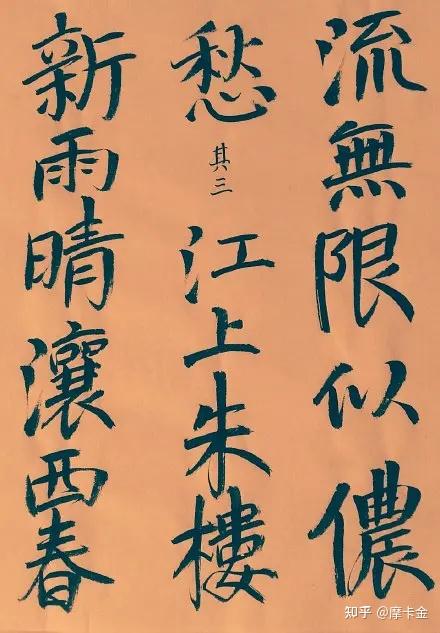 流無限似儂
愁 其三 江上朱樓
新雨晴瀼西春
知乎 @摩卡金